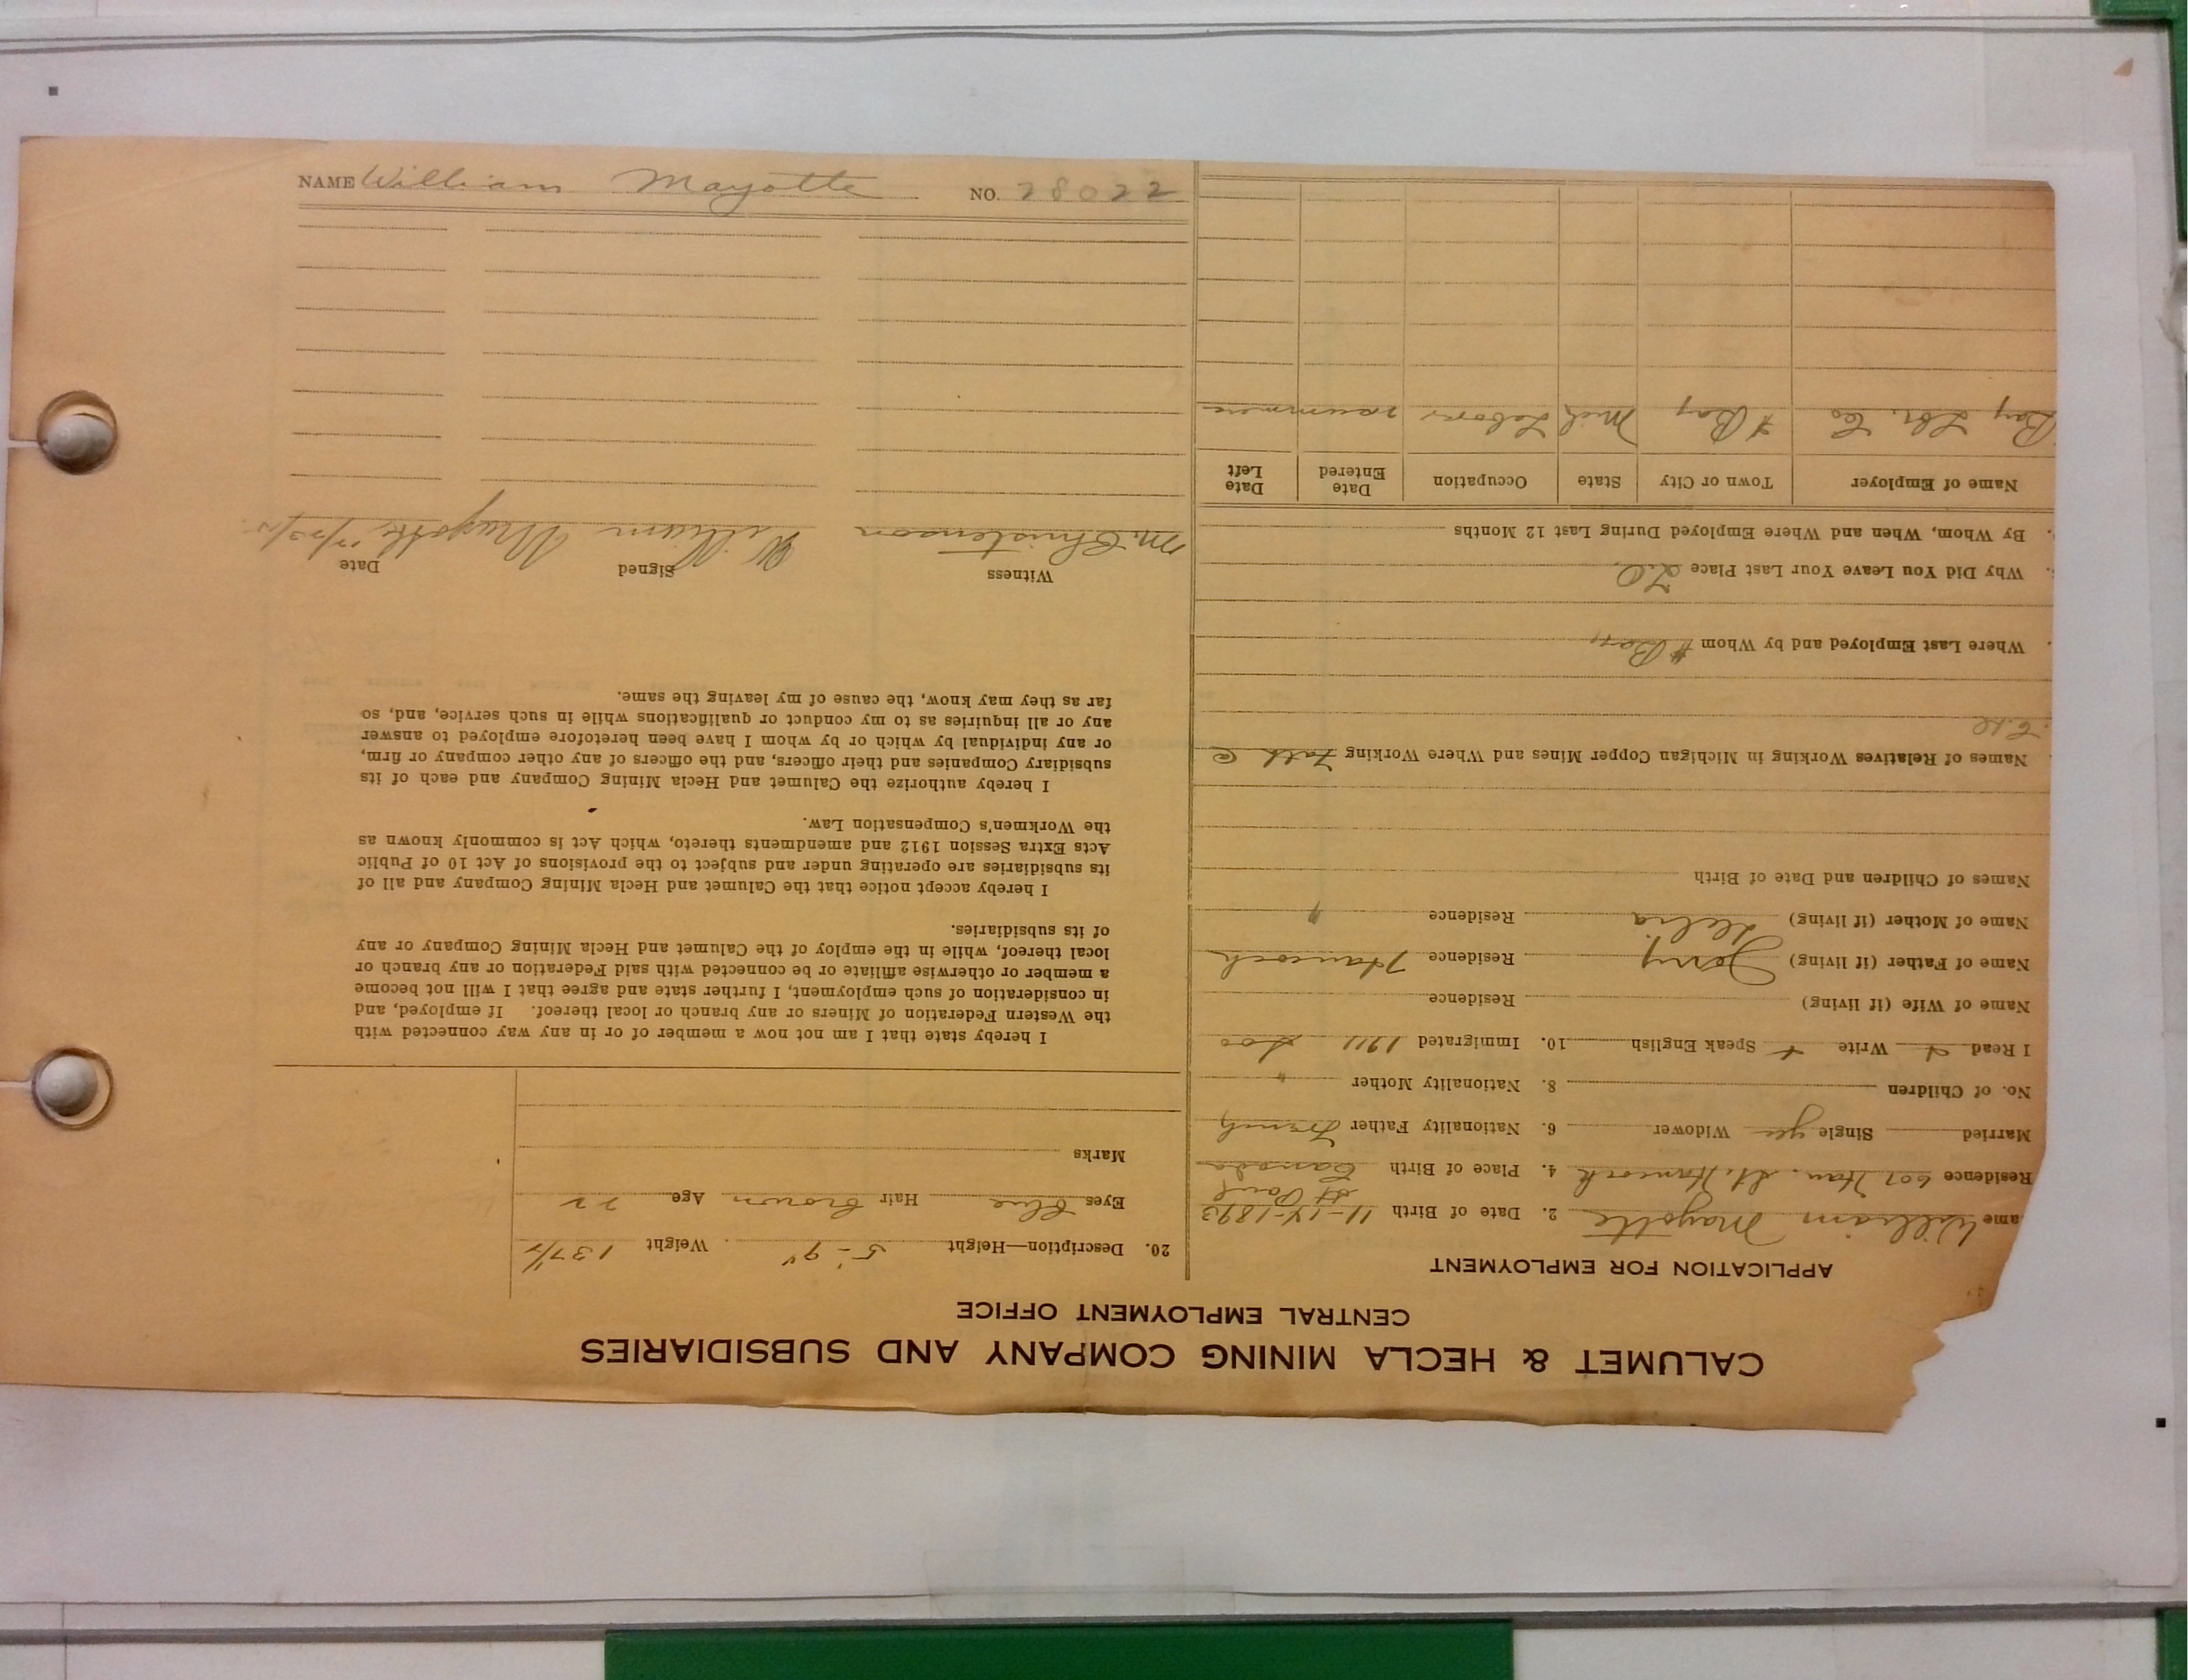 CALUMET & HECLA MINING COMPANY AND SUBSIDIARIES
CENTRAL EMPLOYMENT OFFICE
APPLICATION FOR EMPLOYMENT
ame William Mayotte 2. Date of Birth 11-14-1893
St Paul
Residence 601 Han. St. Hancock 4. Place of Birth Canada
Married Single yes Widower 6. Nationality Father French
No. of Children 8. Nationality Mother "
I Read Write Speak English 10. Immigrated 1911 Soo
Name of Wife (if living) Residence
Name of Father (if living) Jerry Residence Hancock
Name of Mother (if living) Residence "
Names of Children and Date of Birth
Names of Relatives Working in Michigan Copper Mines and Where Working Fath @
Where Last Employed and by Whom Bay
Why Did You Leave Your Last Place
By Whom, When and Where Employed During Last 12 Months
Name of Employer Town or City State Occupation Date Entered Date Left
Bay Lbr. Co Bay Mich Labor summer
20. Description—Height 5'-9" Weight 137½
Eyes blue Hair brown Age 22
Marks
I hereby state that I am not now a member of or in any way connected with
the Western Federation of Miners or any branch or local thereof. If employed, and
in consideration of such employment, I further state and agree that I will not become
a member or otherwise affiliate or be connected with said Federation or any branch or
local thereof, while in the employ of the Calumet and Hecla Mining Company or any
of its subsidiaries.
I hereby accept notice that the Calumet and Hecla Mining Company and all of
its subsidiaries are operating under and subject to the provisions of Act 10 of Public
Acts Extra Session 1912 and amendments thereto, which Act is commonly known as
the Workmen's Compensation Law.
I hereby authorize the Calumet and Hecla Mining Company and each of its
subsidiary Companies and their officers, and the officers of any other company or firm,
or any individual by which or by whom I have been heretofore employed to answer
any or all inquiries as to my conduct or qualifications while in such service, and, so
far as they may know, the cause of my leaving the same.
Witness Signed Date
M. Christenson William Mayotte
NAME William Mayotte NO. 28022